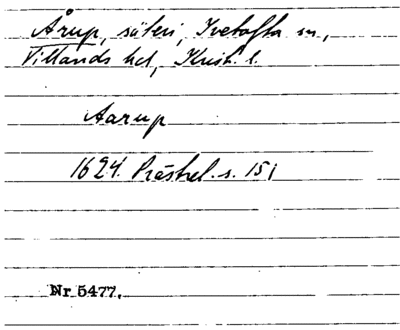 Årup, säteri, Ivetofta sn,
Villands hd, Krist. l.
Aarup
1624. Prästrel. s. 151
Nr 5477.